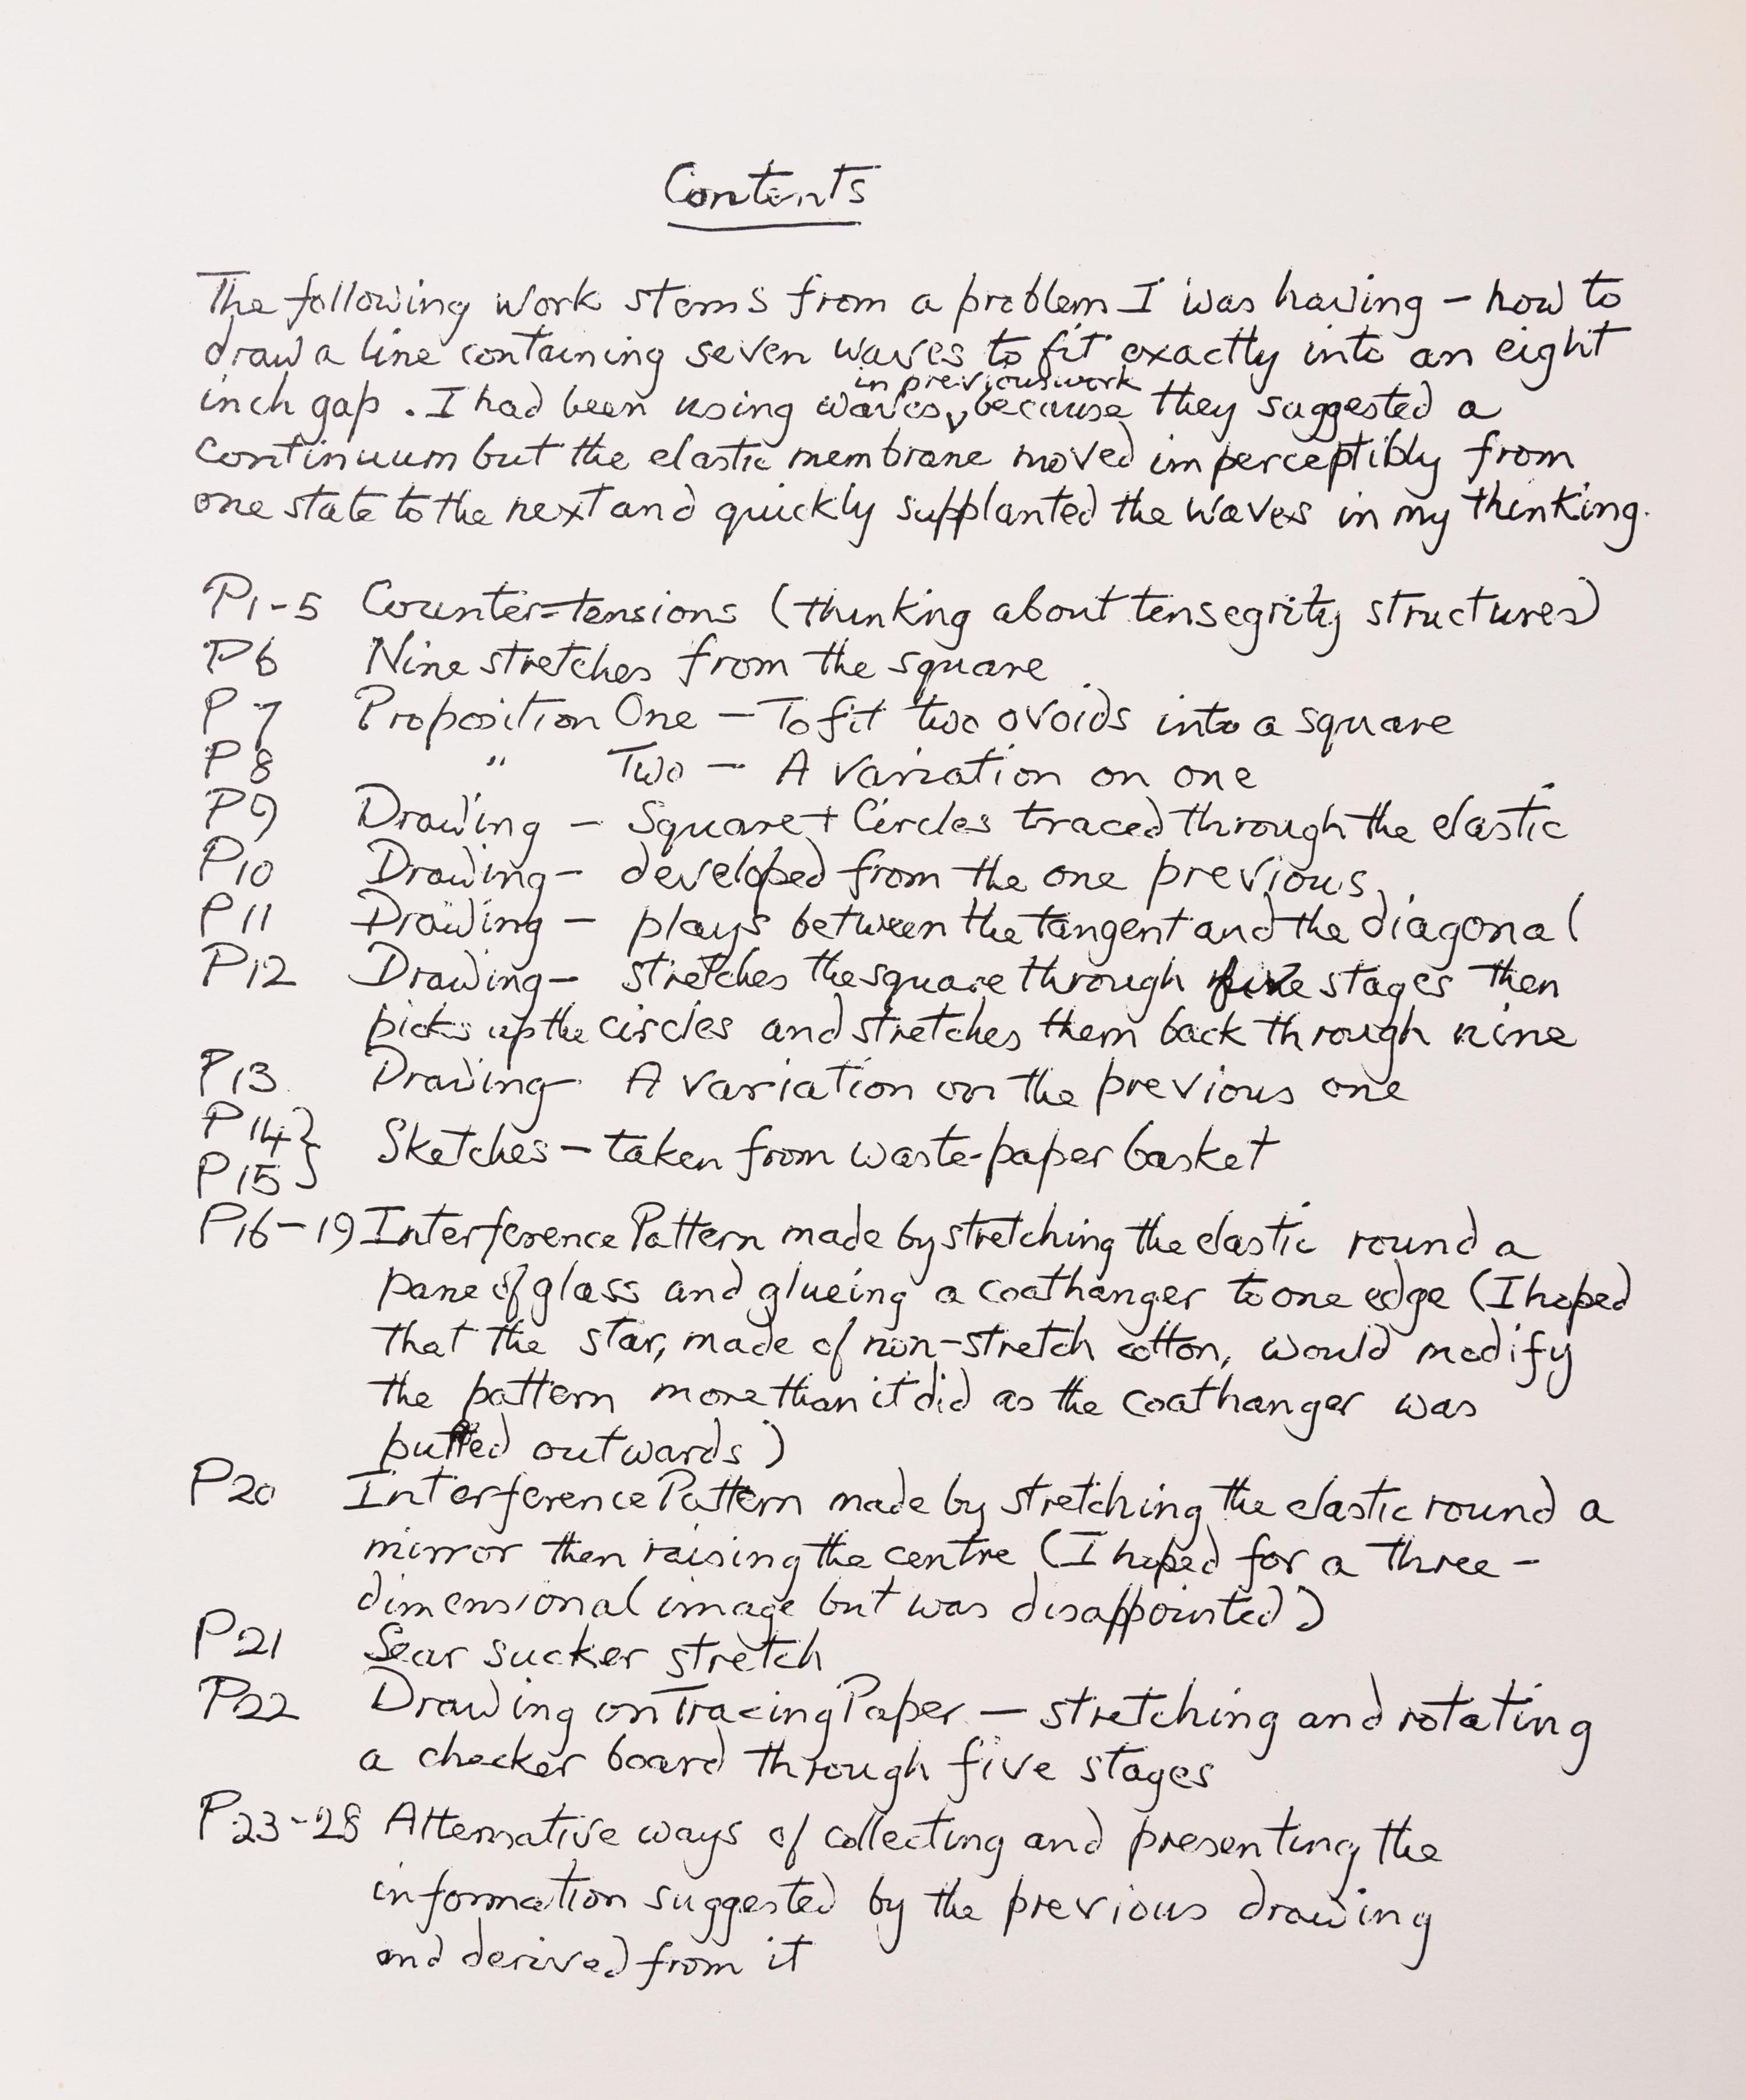 Contents
The following work stems from a problem I was having – how to
draw a line containing seven waves to fit exactly into an eight
in previous work
inch gap. I had been using waves, because they suggested a
continuum but the elastic membrane moved imperceptibly from
one state to the next and quickly supplanted the waves in my thinking.
P1-5 Counter-tensions (thinking about tensegrity structures)
P6 Nine stretches from the square
P7 Proposition One – To fit two ovoids into a square
P8 " Two – A variation on one
P9 Drawing – Square + Circles traced through the elastic
P10 Drawing – developed from the one previous
P11 Drawing – plays between the tangent and the diagonal
P12 Drawing – stretches the square through five stages then
picks up the circles and stretches them back through nine
P13 Drawing – A variation on the previous one
P14 }
Sketches – taken from waste-paper basket
P15 }
P16-19 Interference Pattern made by stretching the elastic round a
pane of glass and glueing a coathanger to one edge (I hoped
that the star, made of non-stretch cotton, would modify
the pattern more than it did as the coathanger was
pulled outwards)
P20 Interference Pattern made by stretching the elastic round a
mirror then raising the centre (I hoped for a three-
dimensional image but was disappointed)
P21 Sear sucker stretch
P22 Drawing on Tracing Paper – stretching and rotating
a checker board through five stages
P23-28 Alternative ways of collecting and presenting the
information suggested by the previous drawing
and derived from it